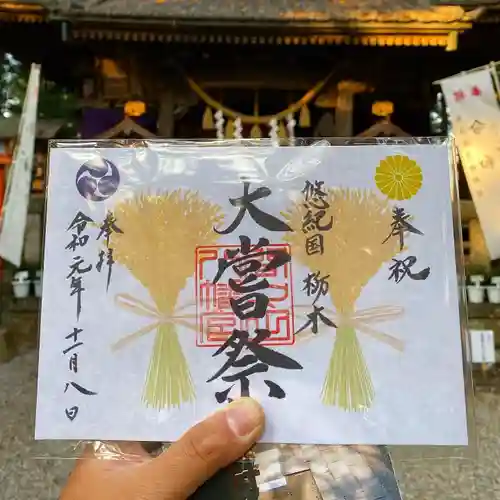 奉祝
悠紀国 栃木
大嘗祭
奉拝
令和元年十一月八日